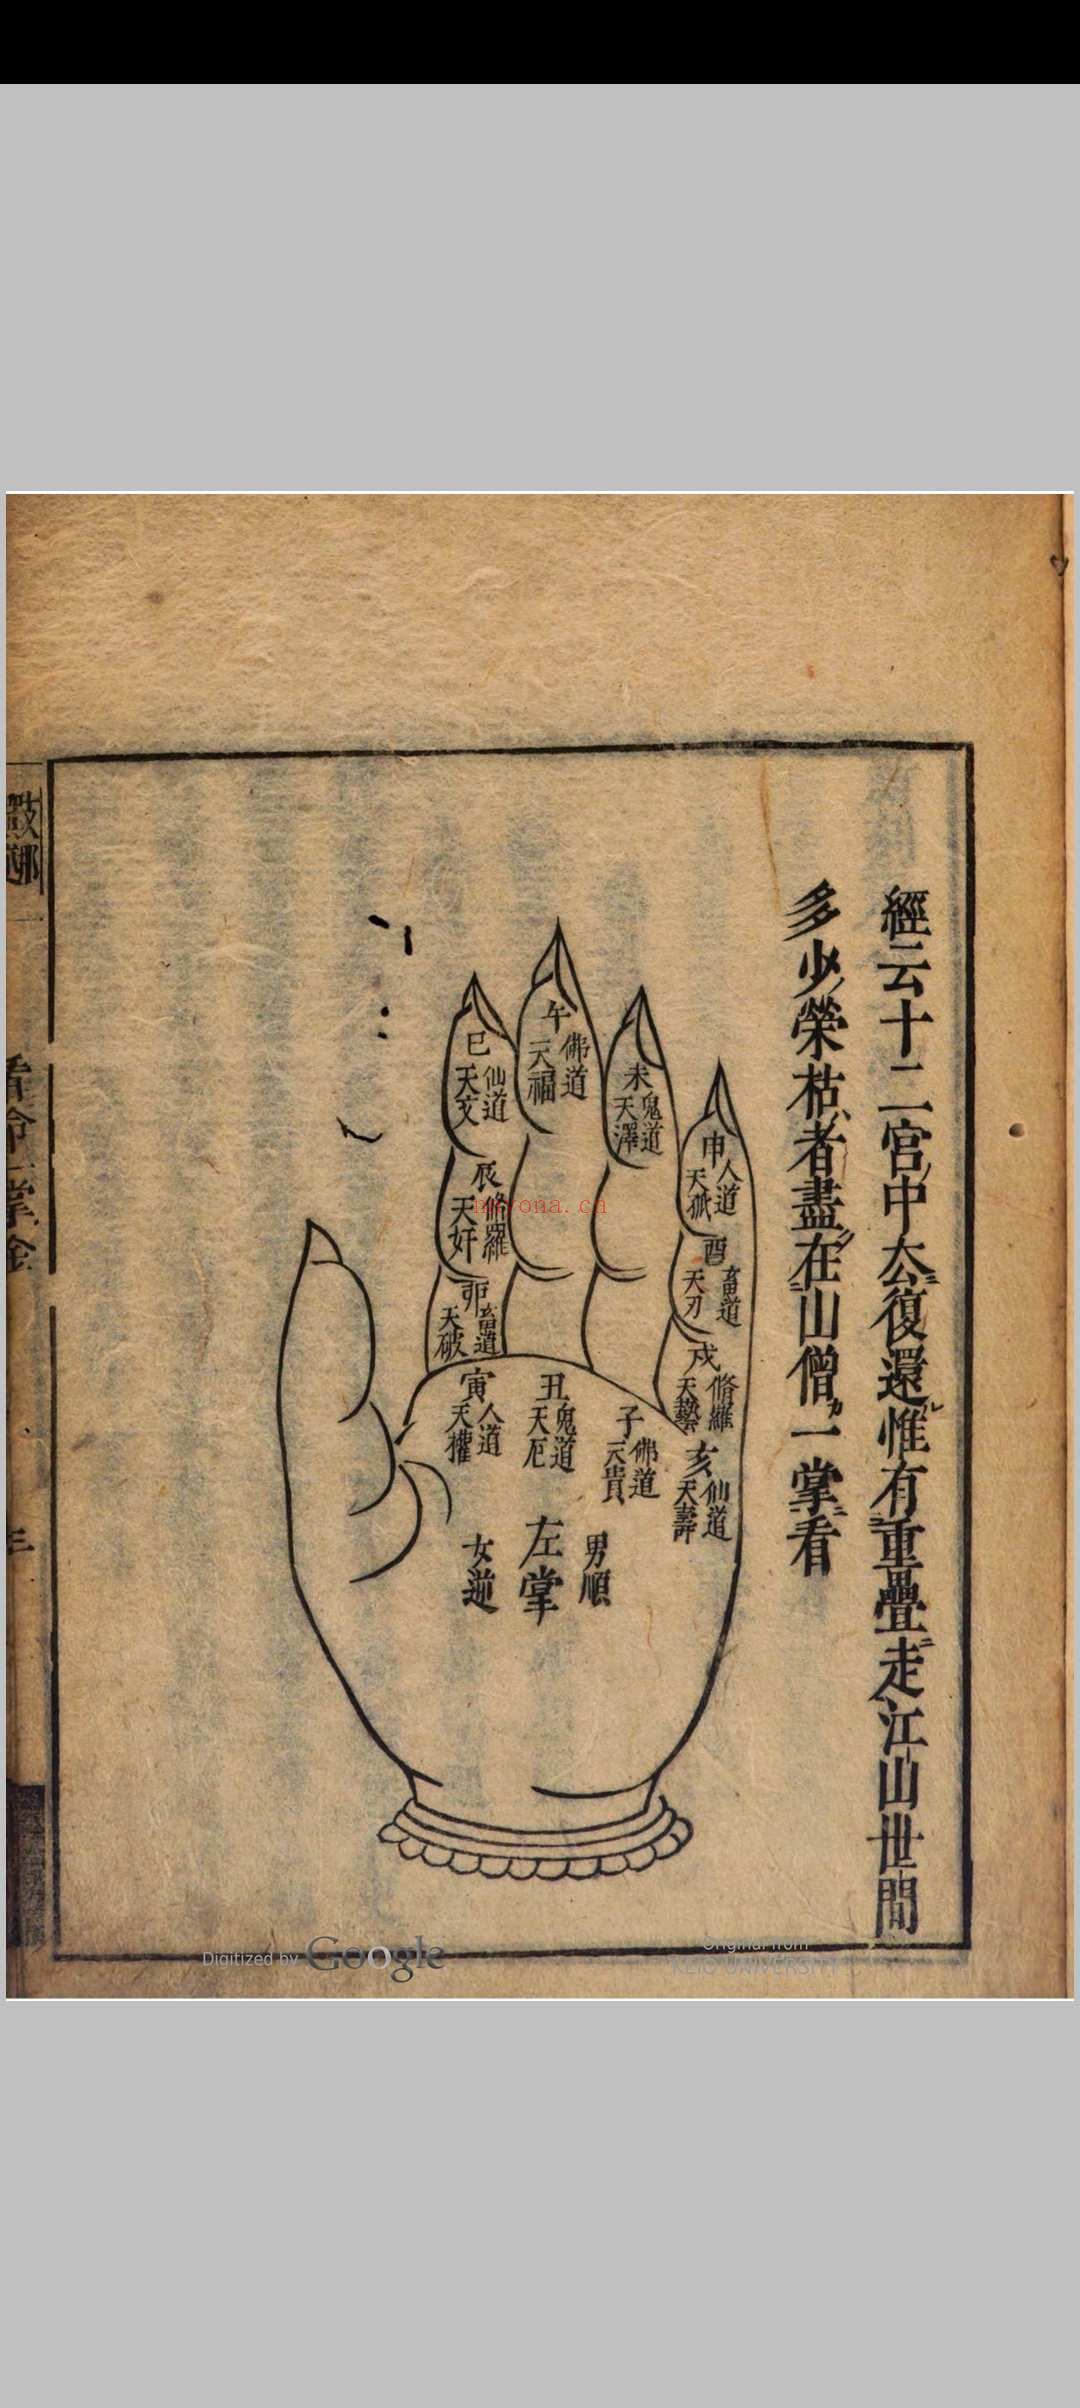 經云十二宮中厺復還惟有重疊走江山世間
多少榮枯者盡在山僧一掌看
午
佛道
天福
巳
仙道
天文
未
鬼道
天澤
申
人道
天孤
辰
脩羅
天奸
酉
畜道
天刃
卯
畜道
天破
戌
脩羅
天藝
寅
人道
天權
丑
鬼道
天厄
子
佛道
天貴
亥
仙道
天壽
男順
左掌
女逆
Digitized by Google
Original from
KEIO UNIVERSITY